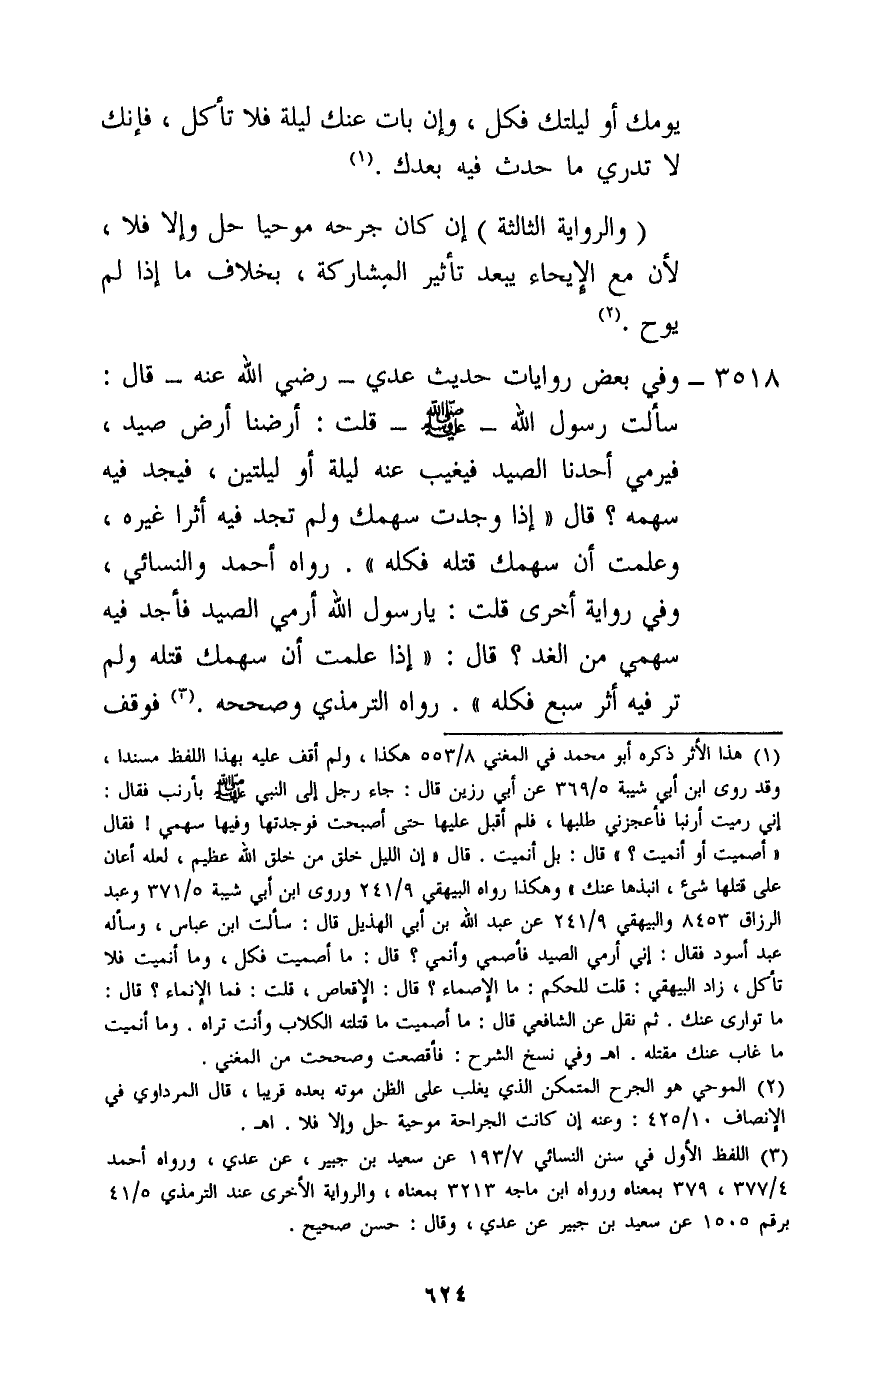 يومك أو ليلتك فكل ، وإن بات عنك ليلة فلا تأكل ، فإنك
لا تدري ما حدث فيه بعدك .(١)
( والرواية الثالثة ) إن كان جرحه موحيا حل وإلا فلا ،
لأن مع الإيحاء يبعد تأثير المشاركة ، بخلاف ما إذا لم
يوح .(٢)
٣٥١٨ – وفي بعض روايات حديث عدي – رضي الله عنه – قال :
سألت رسول الله – ﷺ – قلت : أرضنا أرض صيد ،
فيرمي أحدنا الصيد فيغيب عنه ليلة أو ليلتين ، فيجد فيه
سهمه ؟ قال « إذا وجدت سهمك ولم تجد فيه أثرا غيره ،
وعلمت أن سهمك قتله فكله » . رواه أحمد والنسائي ،
وفي رواية أخرى قلت : يارسول الله أرمي الصيد فأجد فيه
سهمي من الغد ؟ قال : « إذا علمت أن سهمك قتله ولم
تر فيه أثر سبع فكله » . رواه الترمذي وصححه .(٣) فوقف
(١) هذا الأثر ذكره أبو محمد في المغني ٥٥٣/٨ هكذا ، ولم أقف عليه بهذا اللفظ مسندا ،
وقد روى ابن أبي شيبة ٣٦٩/٥ عن أبي رزين قال : جاء رجل إلى النبي ﷺ بأرنب فقال :
إني رميت أرنبا فأعجزني طلبها ، فلم أقبل عليها حتى أصبحت فوجدتها وفيها سهمي ! فقال
« أصميت أو أنميت ؟ » قال : بل أنميت . قال « إن الليل خلق من خلق الله عظيم ، لعله أعان
على قتلها شئ ، انبذها عنك » وهكذا رواه البيهقي ٢٤١/٩ وروى ابن أبي شيبة ٣٧١/٥ وعبد
الرزاق ٨٤٥٣ والبيهقي ٢٤١/٩ عن عبد الله بن أبي الهذيل قال : سألت ابن عباس ، وسأله
عبد أسود فقال : إني أرمي الصيد فأصمي وأنمي ؟ قال : ما أصميت فكل ، وما أنميت فلا
تأكل ، زاد البيهقي : قلت للحكم : ما الإصماء ؟ قال : الإقعاص ، قلت : فما الإنماء ؟ قال :
ما توارى عنك . ثم نقل عن الشافعي قال : ما أصميت ما قتلته الكلاب وأنت تراه . وما أنميت
ما غاب عنك مقتله . اهـ وفي نسخ الشرح : فأقصعت وصححت من المغني .
(٢) الموحي هو الجرح المتمكن الذي يغلب على الظن موته بعده قريبا ، قال المرداوي في
الإنصاف ٤٢٥/١٠ : وعنه إن كانت الجراحة موحية حل وإلا فلا . اهـ .
(٣) اللفظ الأول في سنن النسائي ١٩٣/٧ عن سعيد بن جبير ، عن عدي ، ورواه أحمد
٣٧٧/٤ ، ٣٧٩ بمعناه ورواه ابن ماجه ٣٢١٣ بمعناه ، والرواية الأخرى عند الترمذي ٤١/٥
برقم ١٥٠٥ عن سعيد بن جبير عن عدي ، وقال : حسن صحيح .
٦٢٤